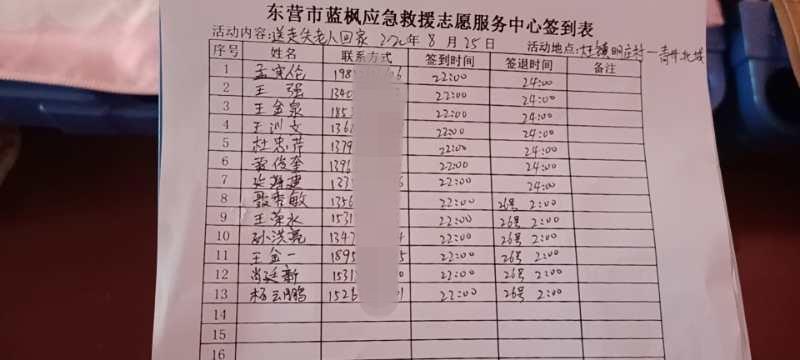 东营市蓝枫应急救援志愿服务中心签到表
活动内容:送走失老人回家 2020年8月25日 活动地点:
序号 姓名 联系方式 签到时间 签退时间 备注
1 198 22:00 24:00
2 王强 1340 22:00 24:00
3 王金泉 1853 22:00 24:00
4 王训文 1361 22:00 24:00
5 杜忠萍 1379 22:00 24:00
6 俊奎 1396 22:00 24:00
7 22:00 24:00
8 聂秀敏 1356 22:00 26号 2:00
9 王荣水 1531 22:00 26号 2:00
10 孙洪亮 1347 22:00 26号 2:00
11 王金一 1895 5 22:00 26号 2:00
12 尚廷新 1531 0 22:00 26号 2:00
13 杨云鹏 1526 1 22:00 26号 2:00
14
15
16